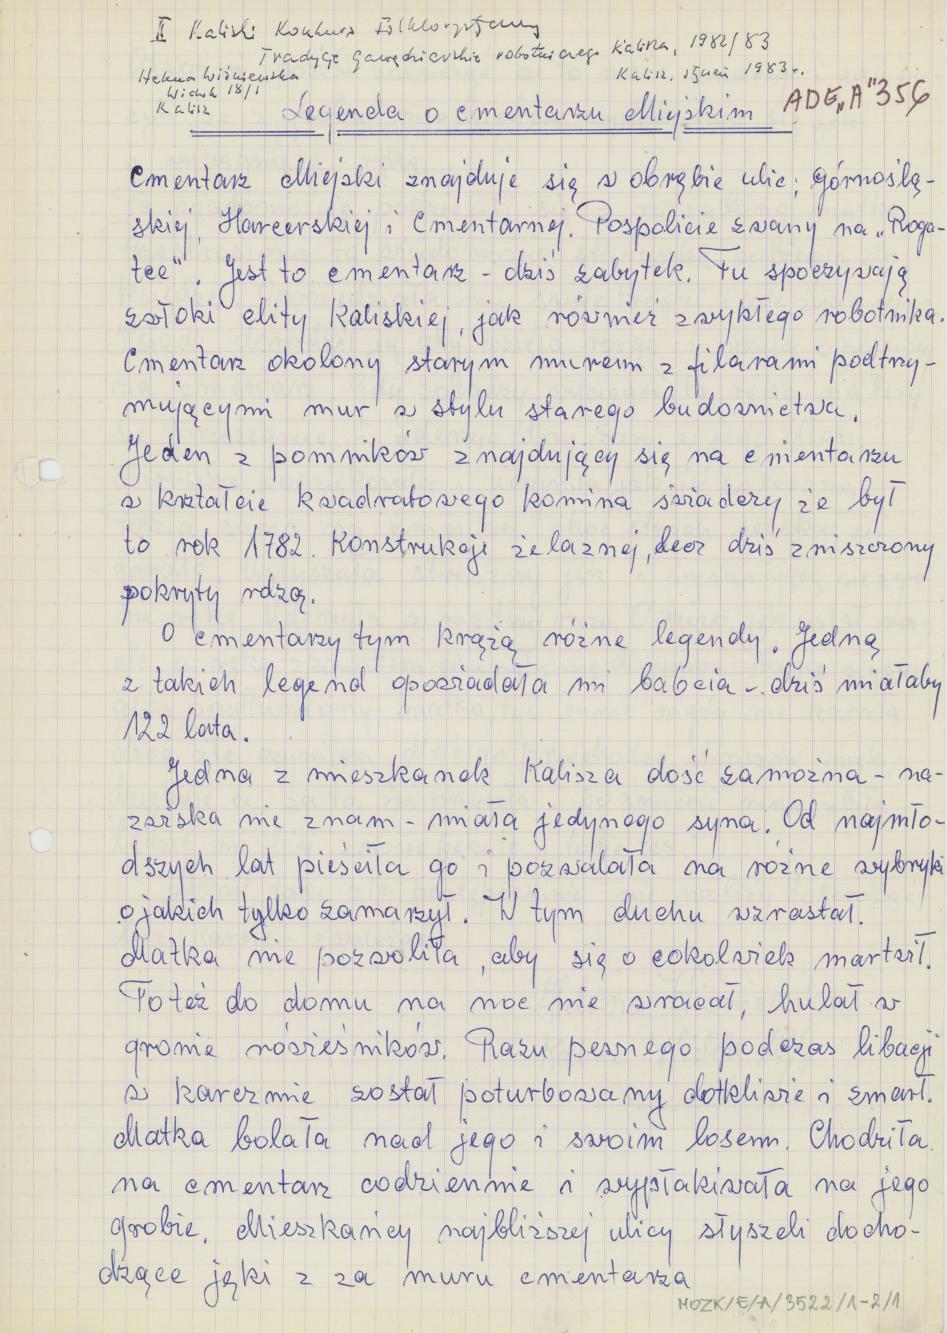 II Kaliski Konkurs Folklorystyczny
Tradycje gawędziarskie robotniczego Kalisza, 1982/83
Helena Wiśniewska
Kalisz, styczeń 1983 r.
Widok 18/1
Kalisz
ADE „A" 356
Legenda o cmentarzu Miejskim
Cmentarz Miejski znajduje się w obrębie ulic; Górnoślą-
skiej, Harcerskiej i Cmentarnej. Pospolicie zwany na „Roga-
tce". Jest to cmentarz - dziś zabytek. Tu spoczywają
zwłoki elity Kaliskiej, jak również zwykłego robotnika.
Cmentarz okolony starym murem z filarami podtrzy-
mującymi mur w stylu starego budownictwa.
Jeden z pomników znajdujący się na cmentarzu
w kształcie kwadratowego komina świadczy że był
to rok 1782. Konstrukcji żelaznej, lecz dziś zniszczony
pokryty rdzą.
O cmentarzy tym krążą różne legendy. Jedną
z takich legend opowiadała mi babcia - dziś miałaby
122 lata.
Jedna z mieszkanek Kalisza dość zamożna - na-
zwiska nie znam - miała jedynego syna. Od najmło-
dszych lat pieściła go i pozwalała na różne wybryki
o jakich tylko zamarzył. W tym duchu wzrastał.
Matka nie pozwoliła, aby się o cokolwiek martwił.
To też do domu na noc nie wracał, hulał w
gronie rówieśników. Razu pewnego podczas libacji
w karczmie został poturbowany dotkliwie i zmarł.
Matka bolała nad jego i swoim losem. Chodziła
na cmentarz codziennie i wypłakiwała na jego
grobie. Mieszkańcy najbliższej ulicy słyszeli docho-
dzące jęki z za muru cmentarza
MOZK/E/A/3522/1-2/1